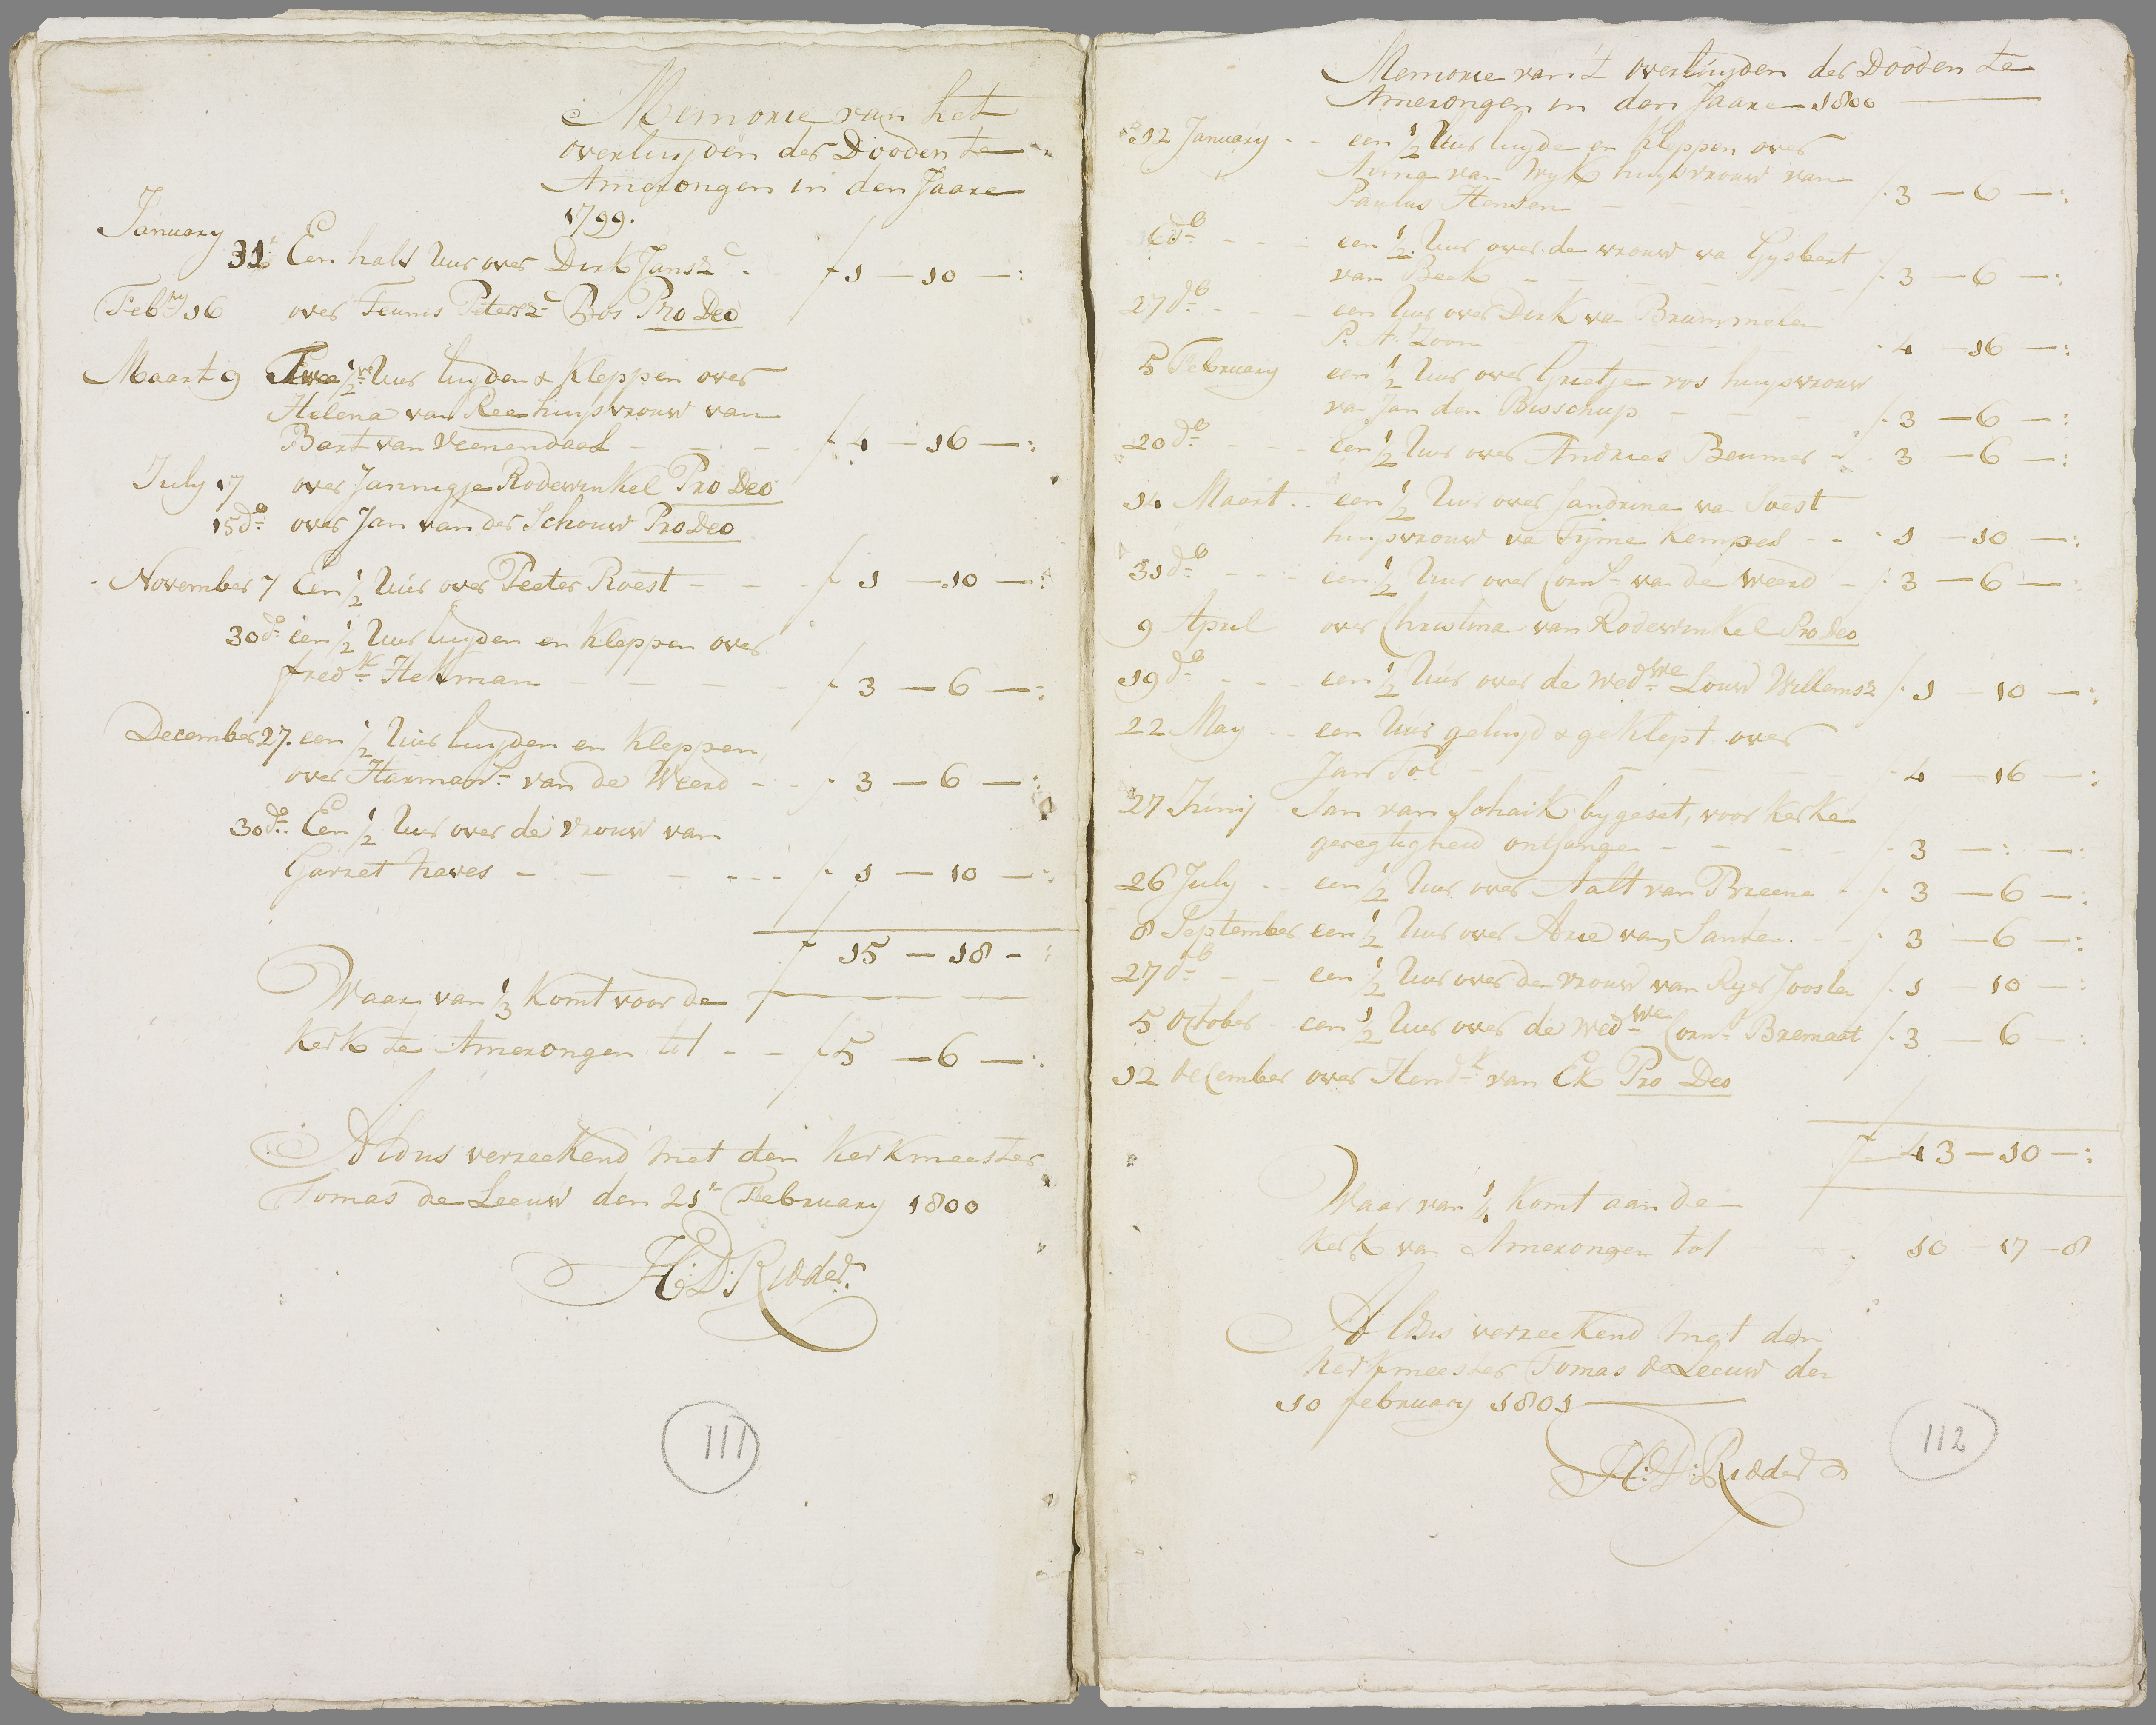 Memorie van het
overluyden der Dooden te
Amerongen in den Jaare
1799.
January
31 Een half Uur over Dirk Jansz f 1 — 10 —:
Febry 16 over Teunis Petersz Bos Pro Deo
Maart 9 Twee 1/2 Uur luyden & Kleppen over
Helena van Ree huysvrouw van
Bart van Veenendaal - - - f 4 — 16 —:
July 17 over Jannigje Rodewinkel Pro Deo
15 do over Jan van der Schouw Pro Deo
November 7 Een 1/2 Uur over Peeter Roest - - f 1 — 10 —:
30 do een 1/2 Uur luyden en Kleppen over
fredk Hekman - - - - f 3 — 6 —:
December 27. een 1/2 Uur luyden en Kleppen,
over Harman van de Weerd - - f 3 — 6 —:
30 do: Een 1/2 Uur over de vrouw van
Garret haves - - - - - - f 1 — 10 —:
f 15 — 18 - :
Waar van 1/3 Komt voor de
Kerk te Amerongen tot - - f 5 — 6 —:
Aldus verreekend met den Kerkmeester
Tomas de Leeuw den 21t February 1800
H: D: Ridder.
111
Memorie van 't overluyden der Dooden te
Amerongen in den Jaare 1800
12 January - - een 1/2 Uur luyde en Kleppen over
Anna van Wyk huysvrouw van
Paulus Hensen - - f 3 — 6 —:
do - - - een 1/2 Uur over de vrouw va Gysbert
van Beek - - - - f 3 — 6 —:
27 do - - - een Uur over Dirk va Brummelen
P. A. Zoon - - - - 4 — 16 —:
5 February een 1/2 Uur over Grietje vos huysvrouw
va Jan den Bisschup - - - f 3 — 6 —:
20 do - - - een 1/2 Uur over Andries Beumer - - 3 — 6 —:
14 Maart .. een 1/2 Uur over Sandrina va Soest
huysvrouw va Tijme Kempes - - - 1 — 10 —:
31 do - - - een 1/2 Uur over Corns van de weerd - f 3 — 6 —:
9 April over Christina van Rodewinkel Pro Deo
19 do - - - een 1/2 Uur over de Wedwe Louw Willemsz f. 1 — 10 —:
22 May - - een Uur geluyd & geklept over
Jan Tol - - - - - 4 — 16 —:
27 Junij Jan van Schaik bygeset, voor Kerke
geregtigheid ontfange - - - - f. 3 —: —:
26 July - - een 1/2 Uur over Aalt van Breene - f. 3 — 6 —:
8 September een 1/2 Uur over Arie van Sante - - - 3 — 6 —:
27 do - - een 1/2 Uur over de vrouw van Ryer Jooste f. 1 — 10 —:
5 October - een 1/2 Uur over de Wedwe Corns Bremaat f. 3 — 6 —:
12 december over Hendk van Ek Pro Deo
f 43 — 10 —:
Waar van 1/4 Komt aan de
Kerk va Amerongen tot - - - 10 - 17 - 8
Aldus verreekend met den
Kerkmeester Tomas de Leeuw den
10 february 1801
H: D: Ridder
112